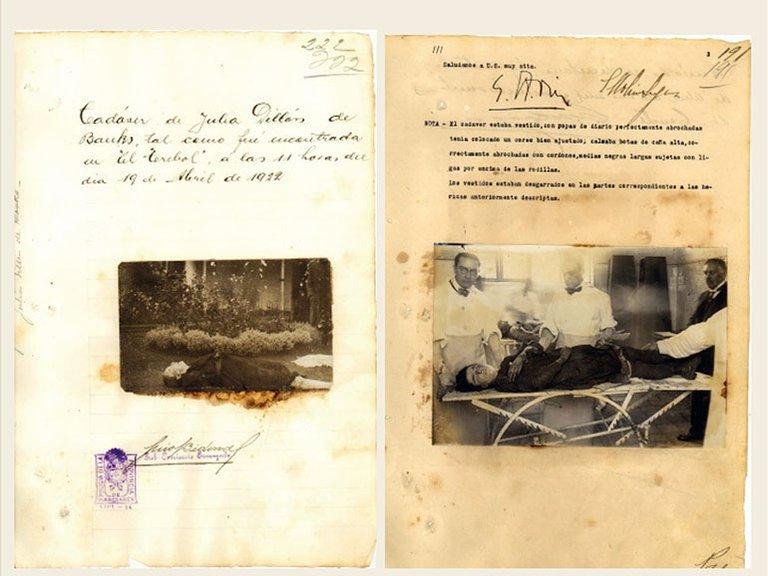 222
202
Cadáver de Julia Dillón de
Banks, tal como fué encontrada
en "El Trebol", á las 11 horas del
día 19 de Abril de 1922
Sub Comisario
PROVINCIA
DE
III
3 191
191
Saludamos a U.S. muy atte.
NOTA - El cadaver estaba vestido,con popas de diario perfectamente abrochadas
tenia colocado un corse bien ajustado; calzaba botas de caña alta,co-
rrectamente abrochadas con cordones,medias negras largas sujetas con li-
gas por encima de las rodillas.
Los vestidos estaban desgarrados en las partes correspondientes a las he-
ridas anteriormente descriptas.